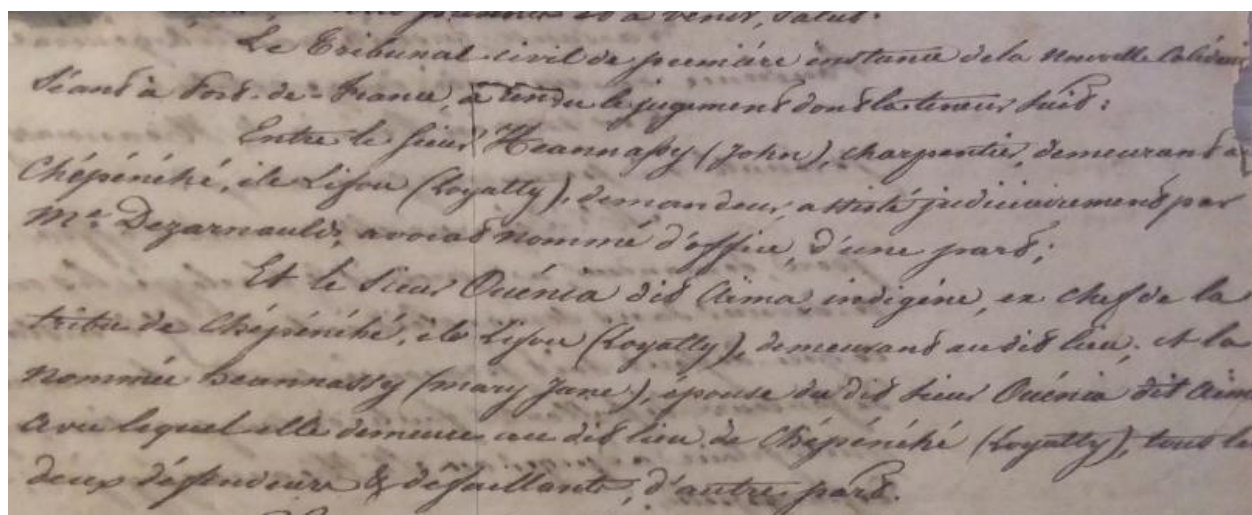 et à venir, Salut.
Le Tribunal civil de première instance de la Nouvelle Calédonie
Séant à Port-de-France, a rendu le jugement dont la teneur suit:
Entre le sieur Heannassy (John), charpentier, demeurant à
Chépénéhé, île Lifou (Loyalty), demandeur, assisté judiciairement par
Me. Dezarnaulds, avocat nommé d'office, d'une part;
Et le Sieur Ouénia dit Aima, indigène, ex chef de la
tribu de Chépénéhé, île Lifou (Loyalty), demeurant au dit lieu; et la
nommée heannassy (mary Jane), épouse du dit Sieur Ouénia dit Aima
avec lequel elle demeure au dit lieu de Chépénéhé (Loyalty), tous les
deux défendeurs & défaillants, d'autre part.